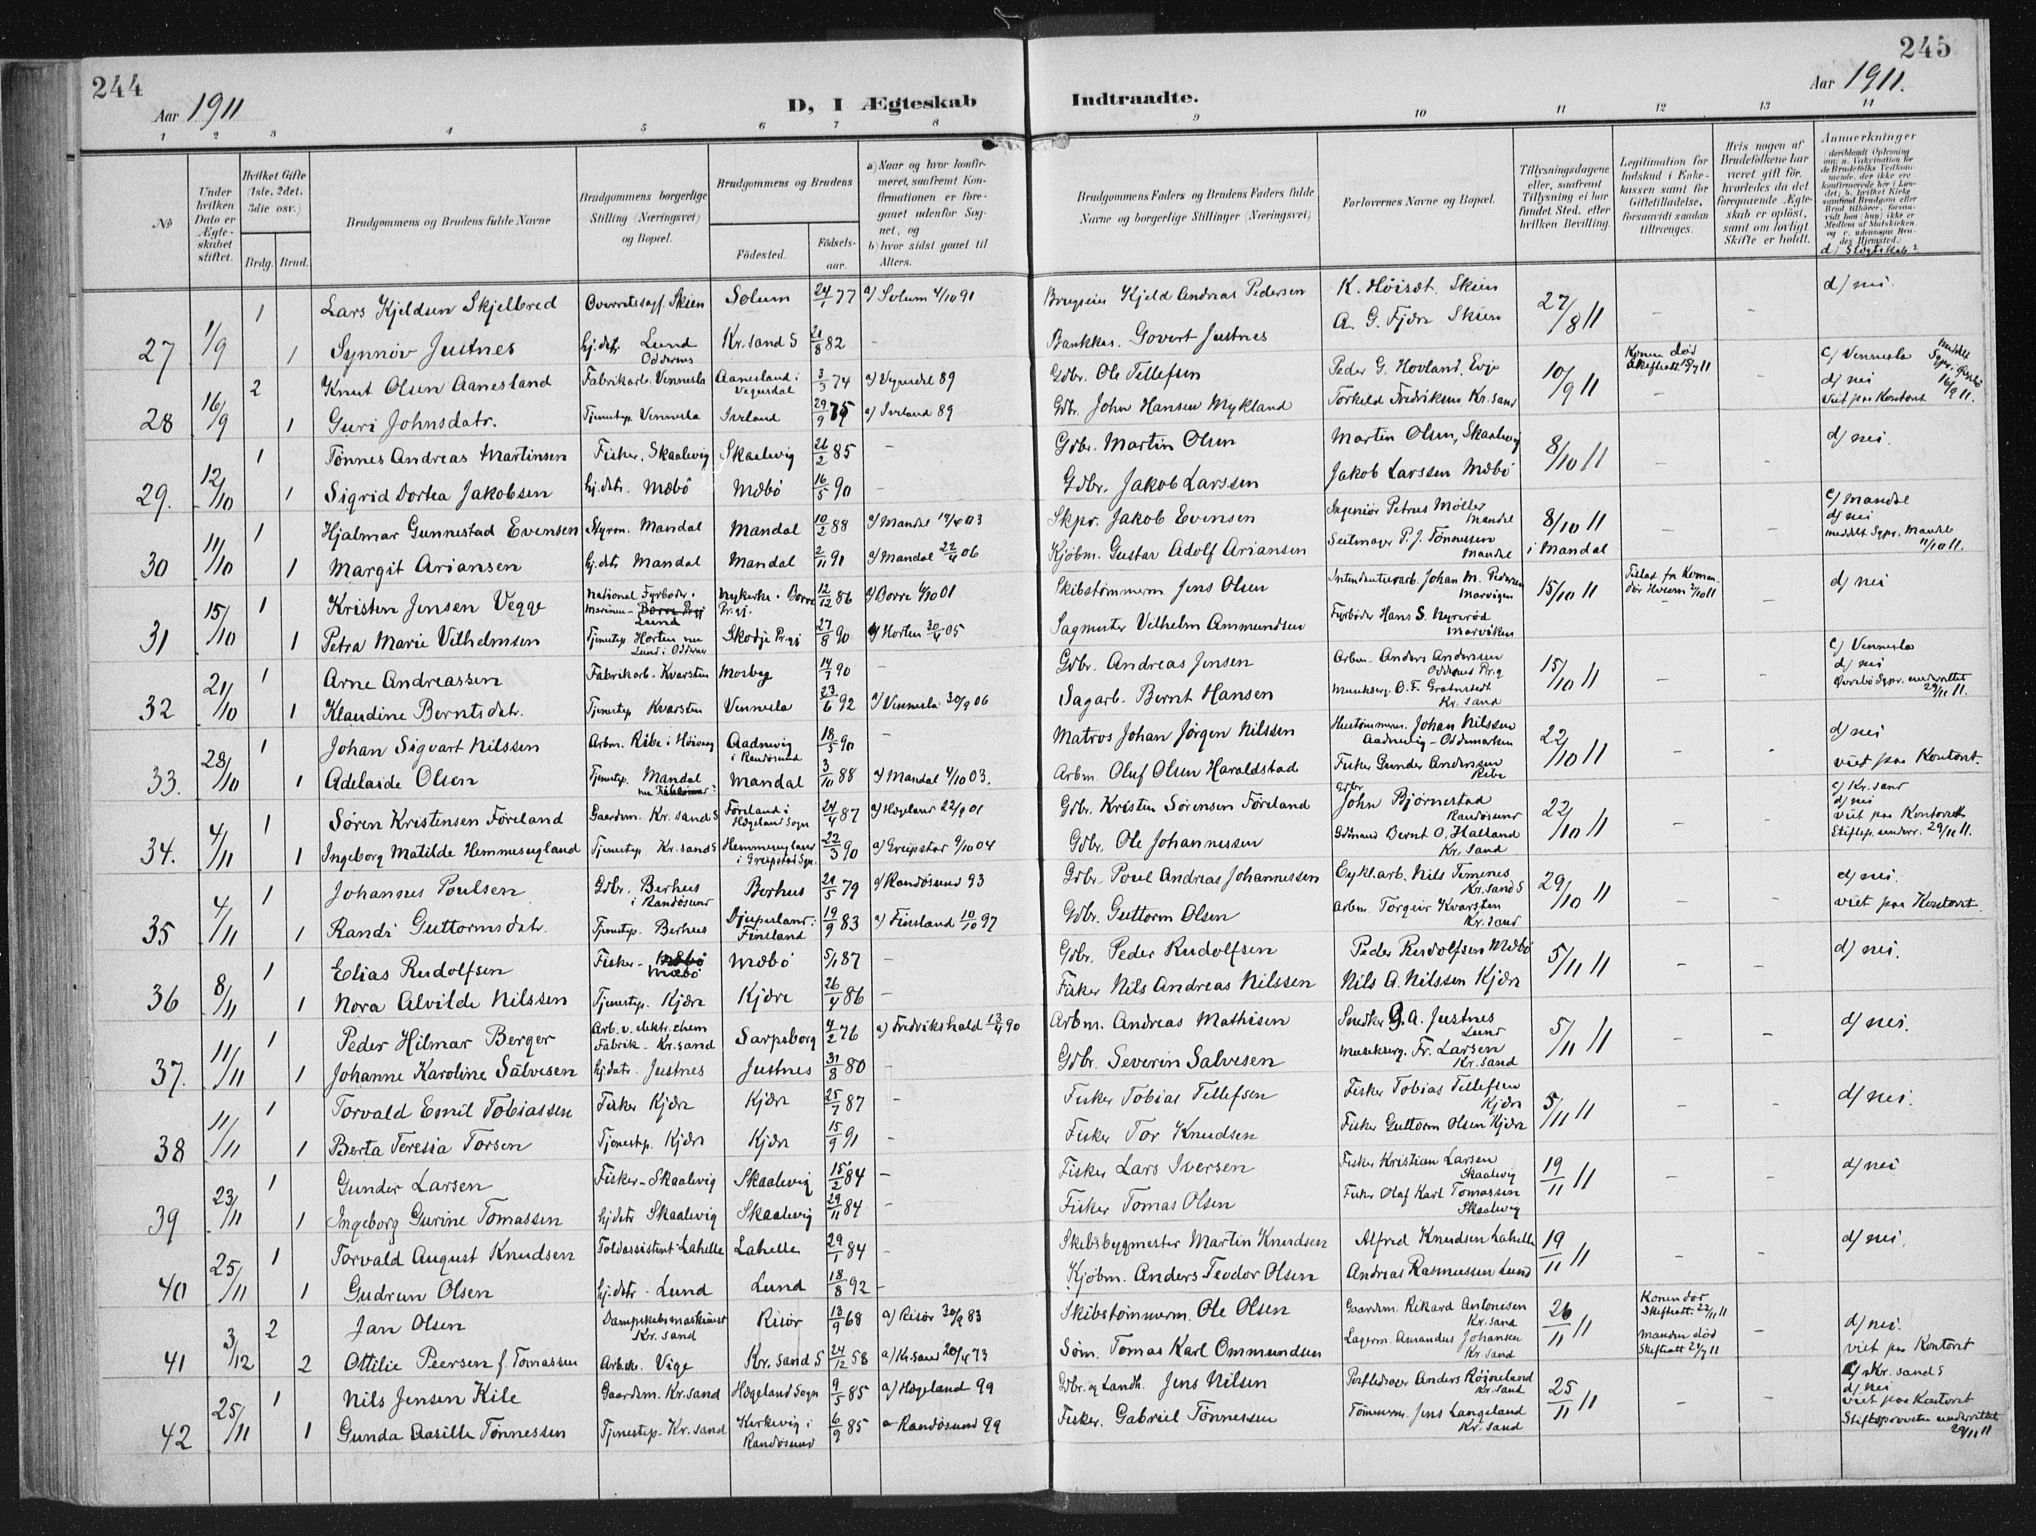 244
Aar 1911
D, I Ægteskab
Indtraadte.
Aar 1911.
245
1 2 3 4 5 6 7 8 9 10 11 12 13 14
No
Under hvilken Dato er Ægteskabet stiftet.
Hvilket Gifte (1ste, 2det, 3die osv.)
Brdg. Brud.
Brudgommens og Brudens fulde Navne
Brudgommens borgerlige Stilling (Næringsvei) og Bopæl.
Brudgommens og Brudens
Fødested. Fødselsaar.
a) Naar og hvor konfirmeret, saafremt Konfirmationen er foregaaet udenfor Sognet, og
b) hvor sidst gaaet til Alters.
Brudgommens Faders og Brudens Faders fulde Navne og borgerlige Stillinger (Næringsvei)
Forlovernes Navne og Bopæl.
Tillysningsdagene eller, saafremt Tillysning ei har fundet Sted, efter hvilken Bevilling.
Legitimation for Indskud i Enkekassen samt for Giftetilladelse, forsaavidt saadan tiltrænges.
Hvis nogen af Brudefolkene har været gift før, hvorledes da det foregaaende Ægteskab er opløst, samt om lovligt Skifte er holdt.
Anmerkninger
d) Slægtskab?
1 Lars Kjeldsen Skjelbred Overretssagf. Skien Solum 24/1 77 a) Solum 4/10 91 Brugseier Kjeld Andreas Pedersen K. Höisæt. Skien 27/8 11 d) nei.
27 1/9 1 Synnöv Justnes hj.dtr. Lund Oddernes Kr.sand S 21/8 82 - Bankkas. Govert Justnes A. G. Fjære Skien - -
2 Knut Olsen Aanesland Fabrikarb. Vennesla Aanesland i Vegusdal 3/3 74 a) Vegusdal 89 Gdbr. Ole Tellefsen Peder G. Hovland, Evje 10/9 11 Konen död Skifteatt. 18/7 11 c) Vennesla
28 16/9 1 Guri Johnsdatr. Tjenestep. Vennesla Iveland 29/9 75 a) Iveland 89 Gdbr. John Hansen Mykland Torkeld Fredriksen Kr.sand - d) nei Viet paa Kontoret 16/9 11.
1 Tönnes Andreas Martinsen Fisker, Skaalevig Skaalevig 26/2 85 - Gdbr. Martin Olsen Martin Olsen, Skaalevig 8/10 11 d) nei.
29. 12/10 1 Sigrid Dortea Jakobsen hj.dtr. Mæbö Mæbö 16/5 90 - Gdbr. Jakob Larssen Jakob Larssen Mæbö - -
1 Hjalmar Gunnestad Evensen Styrm. Mandal Mandal 10/2 88 a) Mandal 19/4 03 Skpr. Jakob Evensen Ingeniör Petrus Möller Mandal 8/10 11 c) Mandal d) nei
30 11/10 1 Margit Ariansen hj.dtr Mandal Mandal 2/11 91 a) Mandal 22/4 06 Kjöbm. Gustav Adolf Ariansen Seilmager P. J. Tönnessen Mandal i Mandal - - meddelt Sgpr. Mandal 11/10 11.
1 Kristen Jensen Vegge National Fyrböder i Marinen - Borre Prgj Lund Nykirke i Borre Pr.gj. 12/12 86 a) Borre 1/10 01 Skibstömmerm Jens Olsen Intendanturarb. Johan M. Pedersen Marvigen 15/10 11 Tillad. fra Kommandör 2/10 11 d) nei
31 15/10 1 Petra Marie Vilhelmsen Tjenestep Horten nu Lund i Oddernes Skodje Pr.gj 27/8 90 a) Horten 30/4 05 Sagmester Vilhelm Ammundsen Fyrböder Hans S. Nyeröd Marviken -
1 Arne Andreassen Fabrikarb. Kvarsten Mosbyg 14/7 90 - Gdbr. Andreas Jensen Arbm. Anders Anderssen Oddernes Pr.g 15/10 11 c) Vennesla d) nei
32 21/10 1 Klaudine Berntsdatr. Tjenestep Kvarsten Vennesla 23/6 92 a) Vennesla 30/9 06 Sagarb. Bernt Hansen O. F. Kr. sand - -
1 Johan Sigvart Nilssen Arbm. Ribe i Höivaag Aadnevig i Randösund 18/5 90 - Matros Johan Jörgen Nilssen Hustömmerm. Johan Nilssen Aadnevig - Oddemarken 22/10 11 d) nei
33. 28/10 1 Adelaide Olsen Tjenestep. Mandal Mandal 3/10 88 a) Mandal 4/10 03. Arbm. Oluf Olsen Haraldstad Fisker Gunder Anderssen Ribe - - viet paa Kontoret.
1 Sören Kristensen Föreland Gaardsm. Kr.sand S Föreland i Hægeland Sogn 24/4 87 a) Hægeland 22/9 01 Gdbr. Kristen Sörensen Föreland Gdbr John Björnestad Randösund 22/10 11 c) Kr. sand d) nei viet paa Kontoret
34. 4/11 1 Ingeborg Matilde Hemmesugland Tjenestep Kr.sand S Hemmesugland i Greipstad Sgn. 22/3 90 a) Greipstad 9/10 04 Gdbr. Ole Johannessen Gdmand Bernt O. Halland Kr. sand - - Stiftsp. underr. 29/11 11.
1 Johannes Poulsen Gdbr. Berhus i Randösund Berhus 21/5 79 a) Randösund 93 Gdbr. Poul Andreas Johannessen Cyklarb. Nils Timenes Kr.sand S 29/10 11 d) nei.
35 4/11 1 Randi Guttormsdatr. Tjenestep. Berhus Djupesland i Finsland 19/9 83 a) Finsland 10/10 97 Gdbr. Guttorm Olsen Arbm. Torgeir Kvarsten Kr. sand - - viet paa Kontoret.
1 Elias Rudolfsen Fisker - Mæbö Mæbö 5/1 87 - Gdbr. Peder Rudolfsen Peder Rudolfsen Mæbö 5/11 11 d) nei.
36 8/11 1 Nora Alvilde Nilssen Tjenestep. Kjære Kjære 26/4 86 - Fisker Nils Andreas Nilssen Nils A. Nilssen Kjære - -
1 Peder Hilmar Berger Arb. v. elektr. chem Fabrik - Kr.sand Sarpsborg 4/2 76 a) Fredrikshald 13/4 90 Arbm. Andreas Mathisen Snedker G. A. Justnes Lund 5/11 11 d) nei.
37. 11/11 1 Johanne Karoline Salvesen hj.datr. Justnes Justnes 31/8 80 - Gdbr. Severin Salvesen Fr. Larsen Kr. sand - -
1 Torvald Emil Tobiassen Fisker Kjære Kjære 25/7 87 - Fisker Tobias Tellefsen Fisker Tobias Tellefsen Kjære 5/11 11 d) nei.
38 11/11 1 Berta Teresia Torsen Tjenestep. Kjære Kjære 15/9 91 - Fisker Tor Knudsen Fisker Guttorm Olsen Kjære - -
1 Gunder Larsen Fisker - Skaalevig Skaalevig 15/2 84 - Fisker Lars Iversen Fisker Kristian Larsen Skaalevig 19/11 11 d) nei
39 23/11 1 Ingeborg Gurine Tomassen hj.dtr Skaalevig Skaalevig 29/11 84 - Fisker Tomas Olsen Fisker Olaf Karl Tomassen Skaalevig - -
1 Torvald August Knudsen Toldassistent Lahelle Lahelle 29/1 84 - Skibsbygmester Martin Knudsen Alfred Knudsen Lahelle 19/11 11 d) nei.
40 25/11 1 Gudrun Olsen hj.dtr - Lund Lund 18/8 92 - Kjöbm. Anders Teodor Olsen Andreas Rasmussen Lund - -
2 Jan Olsen Dampskibsmaskinist Kr. sand Risör 13/9 68 a) Risör 30/9 83 Skibstömmerm. Ole Olsen Gaardsm. Rikard Antonisen Kr. sand 26/11 11 Konen död Skifteatt. 22/11 11 d) nei.
41 3/12 2 Ottilie Peersen f. Tomassen Arb.ske. Vige Kr. sand S 24/12 58 a) Kr.sand 20/4 73 Söm. Tomas Karl Ommundsen Lagerm. Amandus Johansen Kr. sand Manden död Skifteatt 24/7 11 - viet paa Kontoret
1 Nils Jensen Kile Gaardsm. Kr.sand Hægeland Sogn 9/5 85 a) Hægeland 99 Gdbr. og Landh. Jens Nilsen Anders Röjneland Kr. sand 25/11 11 c) Kr. sand S d) nei viet paa Kontoret
42 25/11 1 Gunda Aasille Tönnessen Tjenestep. Kr.sand Kirkevig i Randösund 6/9 85 a Randösund 99 Fisker. Gabriel Tönnessen Tömmerm. Jens Langeland Kr. sand - - Stiftsprovsten underrettet 29/11 11